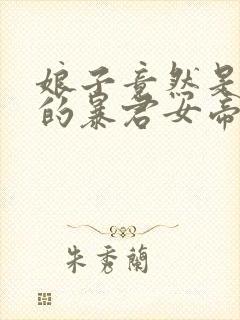 娘子竟然是
的暴君女帝
朱秀蘭